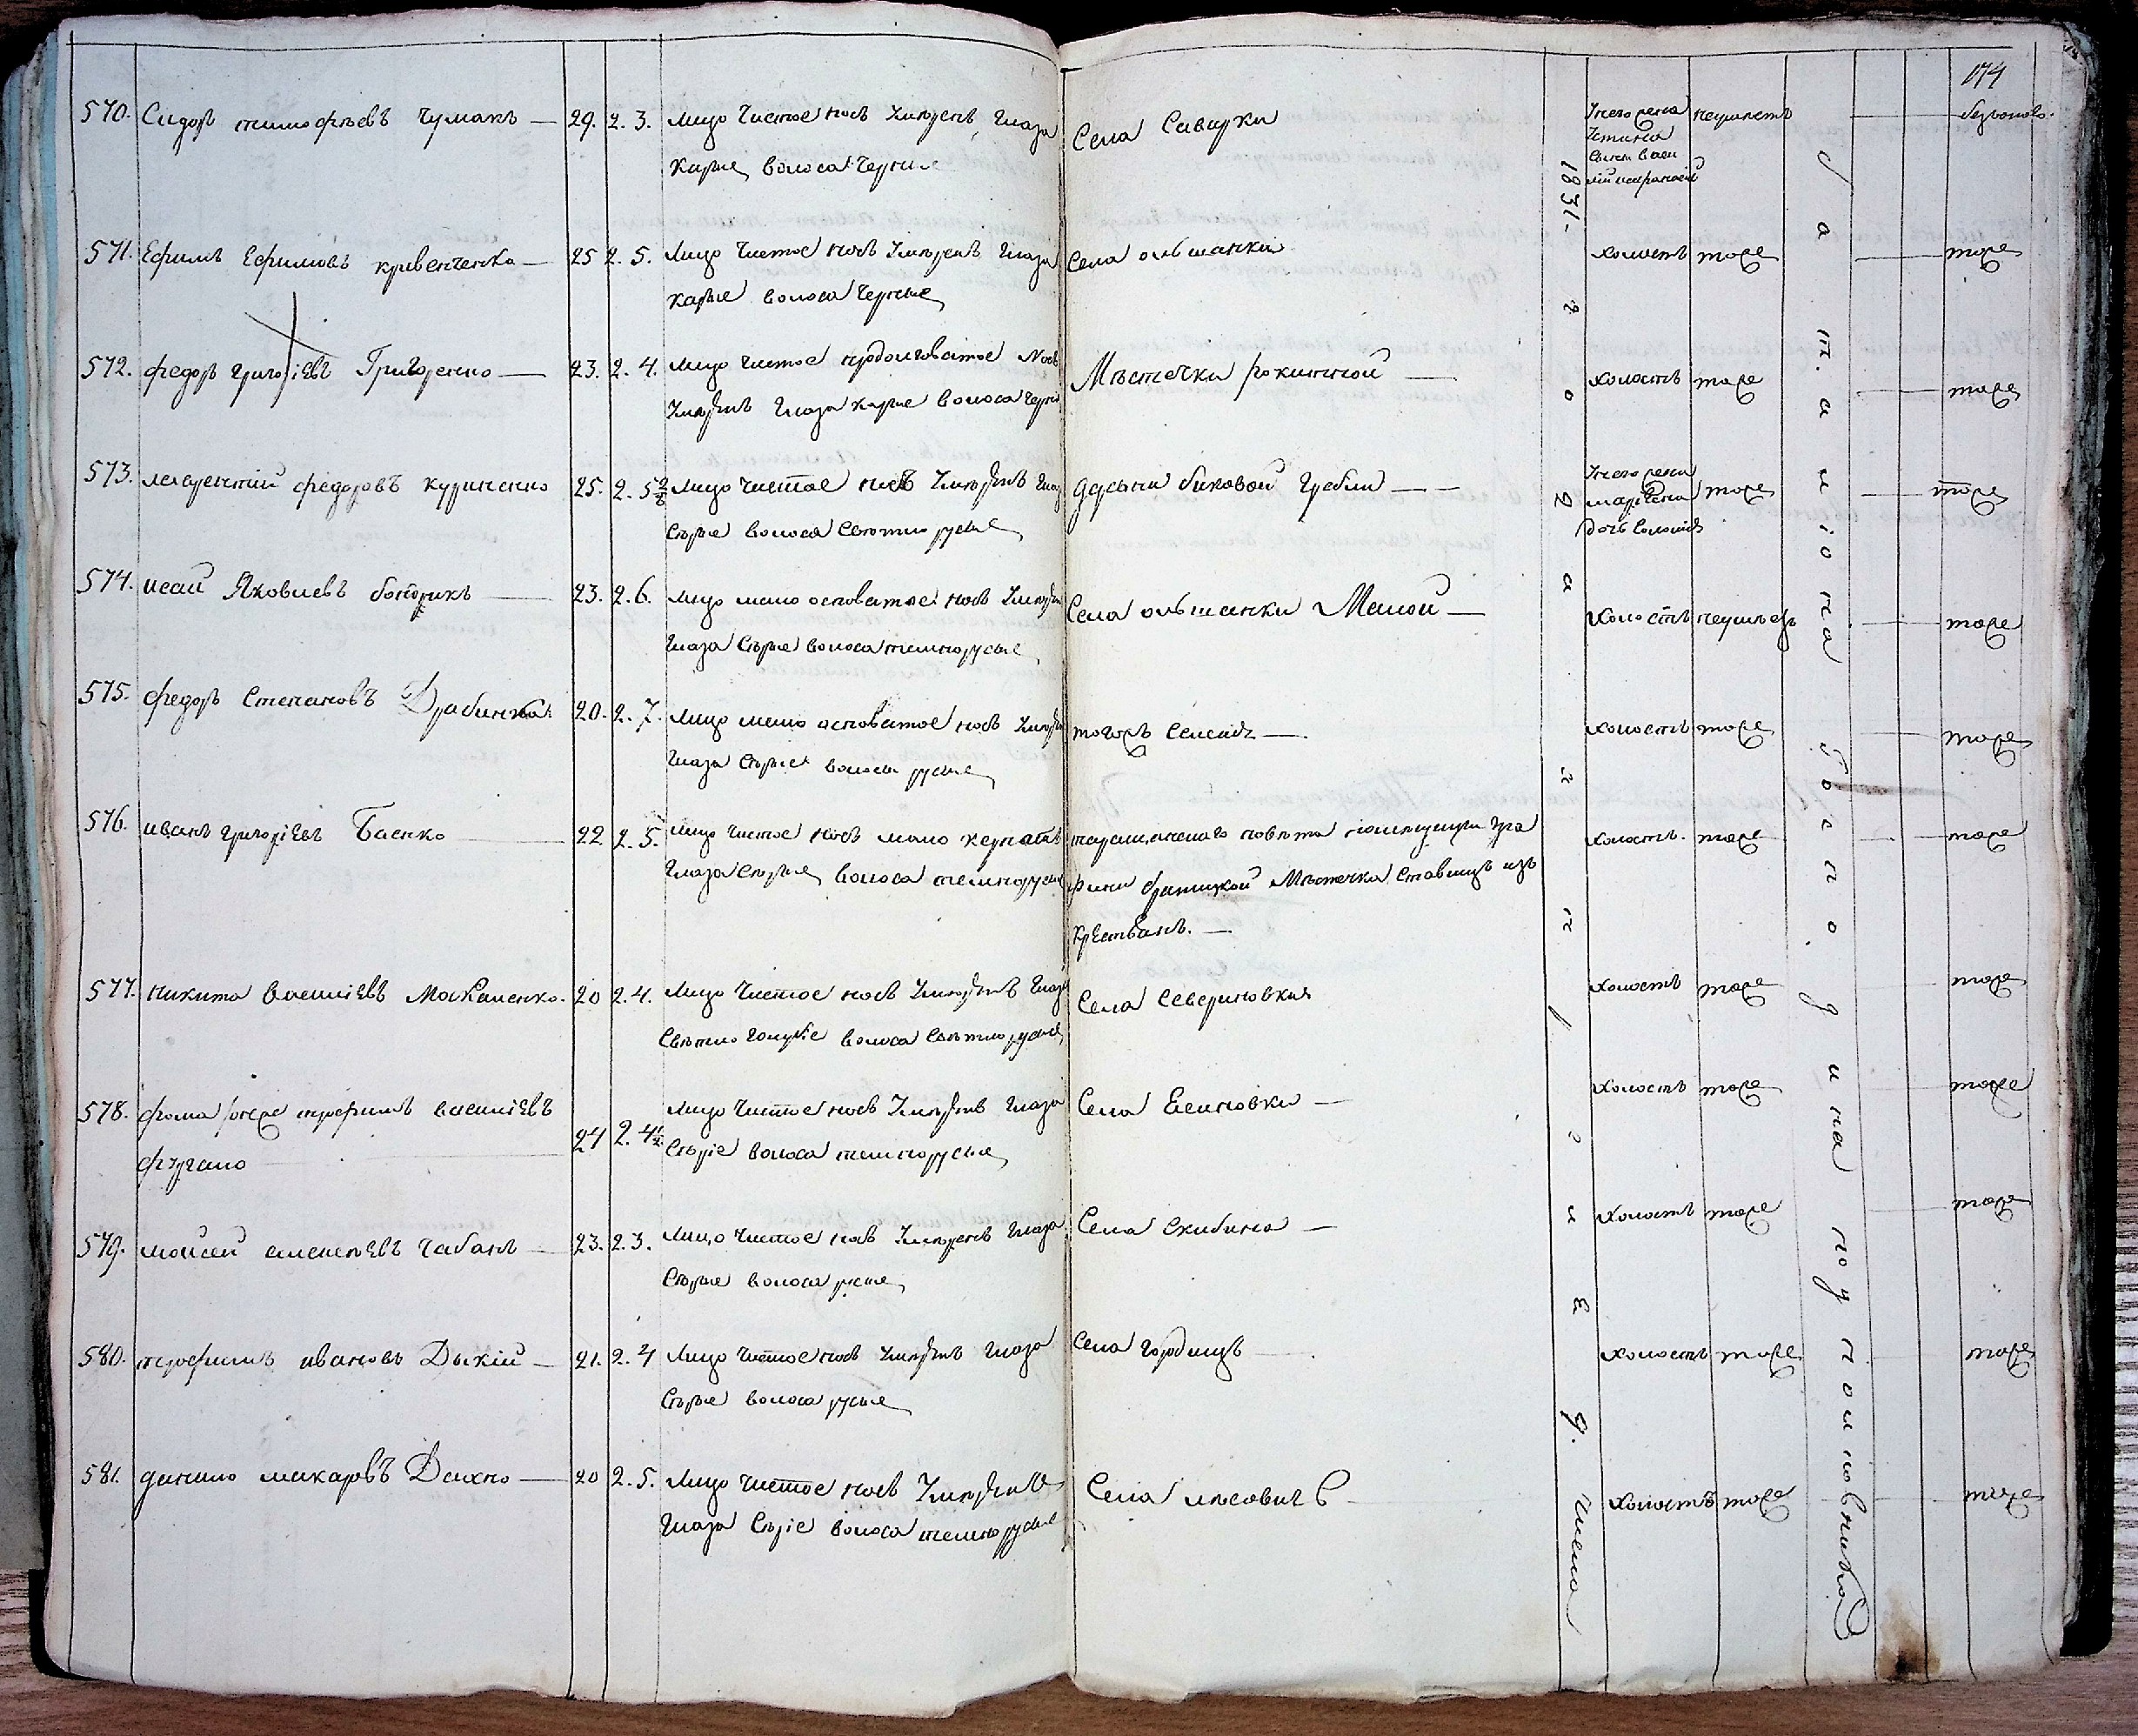 174
570. Сидоръ тимофѣевъ Чумакъ — 29. 2. 3. Лицо Чистое носъ Умѣренъ Глаза
Карые, волоса Черные
Села Савурки
У него жена неумеетъ — безъоново.
Устинья
сынъ васи
лій
571. Ефимъ Ефимовъ кривенченко — 25 2. 5. Лицо Чистое носъ Умѣренъ Глаза
Карые волоса Черные
Села ольшанки холостъ тоже — тоже
572. федоръ григоріевъ Григоренко — 23. 2. 4. Лицо Чистое продолговатое Носъ
Умѣренъ Глаза карые волоса Черны
Мѣстечки рокитной — холостъ тоже — тоже
573. лаврентій федоровъ куриненко 25. 2. 5 Лицо Чистое носъ Умѣренъ Глаз
Сѣрые волоса Светло русые
деревни биковой Гребли — — У него жена тоже — тоже
марѣена
дочь Соломія
574. исай Яковлевъ бондрикъ — 23. 2. 6. Лицо мало осповатое носъ Умѣрен
Глаза Сѣрые волоса темнорусые
Села ольшанки Малой — Холостъ неумѣетъ — тоже
575. федоръ Степановъ Драбинка 20. 2. 7. Лицо мало осповатое носъ Умѣрен
Глаза Сѣрые волоса русые
тогожъ Селенія — холостъ тоже — тоже
576. иванъ григоріевъ Баенко — 22 2. 5. Лицо Чистое носъ мало керпатъ
Глаза Сѣрые, волоса темнорусые
таращанскаго повѣта помещицы гра
фини браницкой Мѣстечка Ставищъ изъ
Крестьянъ. —
холостъ. тоже — тоже
577. никита василіевъ Мокаленко. 20 2. 4. Лицо Чистое носъ Умѣренъ Глаза
Свѣтло голубіе волоса Свѣтло русые,
Села Севериновки холостъ тоже тоже
578. фома /онже трофимъ василіевъ
фургало — 24 2. 4½. Лицо Чистое носъ Умѣренъ Глаза
Сѣріе волоса темнорусые,
Села Есиновки — холостъ тоже тоже
579. моисей алексѣевъ Чабанъ — 23. 2. 3. Лицо Чистое носъ Умѣренъ Глаза
Сѣрые волоса русые,
Села Скибина — Холостъ тоже тоже
580. трофимъ ивановъ Дыкій — 21. 2. 4 Лицо Чистое носъ Умѣренъ Глаза
Сѣрые волоса русые
Села Городищъ — холостъ тоже тоже
581. данило макаровъ Дахно — 20 2. 5. Лицо Чистое носъ Умѣренъ
Глаза Сѣріе волоса темно русые
Села лѣсовичъ Холостъ тоже — тоже
1831- года генваря 9. Числа
баталіона подполковника